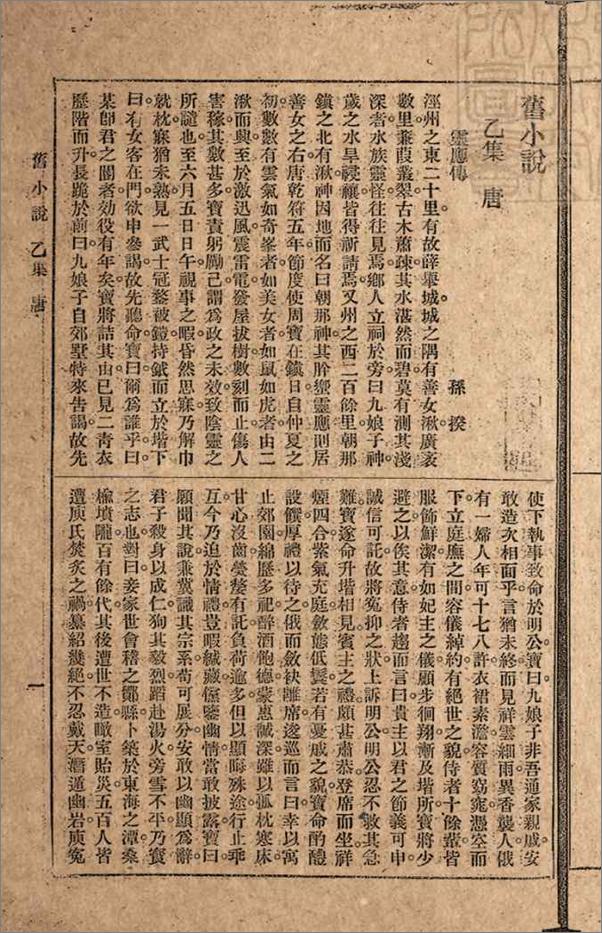 舊小說
乙集 唐
靈應傳
孫揆
涇州之東二十里有故薛舉城城之隅有善女湫廣袤
數里蒹葭叢翠古木蕭疎其水湛然而碧莫有測其淺
深者水族靈怪往往見焉鄉人立祠於旁曰九娘子神
歲之水旱祲禳皆得祈請焉又州之西二百餘里朝那
鎮之北有湫神因地而名曰朝那神其肹蠁靈應則居
善女之右唐乾符五年節度使周寶在鎮日自仲夏之
初數數有雲氣如奇峯者如美女者如鼠如虎者由二
湫而興至於激迅風震雷電發屋拔樹數刻而止傷人
害稼其數甚多寶責躬勵己謂為政之未效致陰靈之
所譴也至六月五日午視事之暇昏然思寐乃解巾
就枕寐猶未熟見一武士冠鍪被鎧持鉞而立於堦下
曰有女客在門欲申參謁故先聽命寶曰爾為誰乎曰
某卽君之閽者効役有年矣寶將詰其由已見二青衣
歷階而升長跪於前曰九娘子自郊墅特來告謁故先
使下執事致命於明公寶曰九娘子非吾通家親戚安
敢造次相面乎言猶未終而見祥雲細雨異香襲人俄
有一婦人年可十七八許衣裙素澹容質窈窕憑空而
下立庭廡之間容儀綽約有絕世之貌侍者十餘輩皆
服飾鮮潔有如妃主之儀顧步徊翔漸及堦所寶將少
避之以俟其意侍者趨而言曰貴主以君之節義可申
誠信可託故將冤抑之狀上訴明公明公忍不救其急
難寶遂命升堦相見賓主之禮頗甚肅恭登席而坐祥
煙四合紫氣充庭斂態低鬟若有憂戚之貌寶命酌醴
設饌厚禮以待之俄而斂袂離席逡巡而言曰幸以寓
止郊園綿歷多祀醉酒飽德蒙惠誠深雖以孤枕寒床
甘心沒齒煢嫠有託負荷逾多但以顯晦殊途行止乖
互今乃迫於情禮豈暇緘藏倘鑒幽情當敢披露寶曰
願聞其說兼冀識其宗系苟可展分安敢以幽顯為辭
君子殺身以成仁狥其毅烈蹈赴湯火旁雪不平乃寶
之志也對曰妾家世會稽之鄮縣卜築於東海之潭桑
榆墳隴百有餘代其後遭世不造瞰室貽災五百人皆
遭庾氏焚炙之禍纂紹幾絕不忍戴天潛遁幽岩庾冤
舊小說 乙集 唐
一